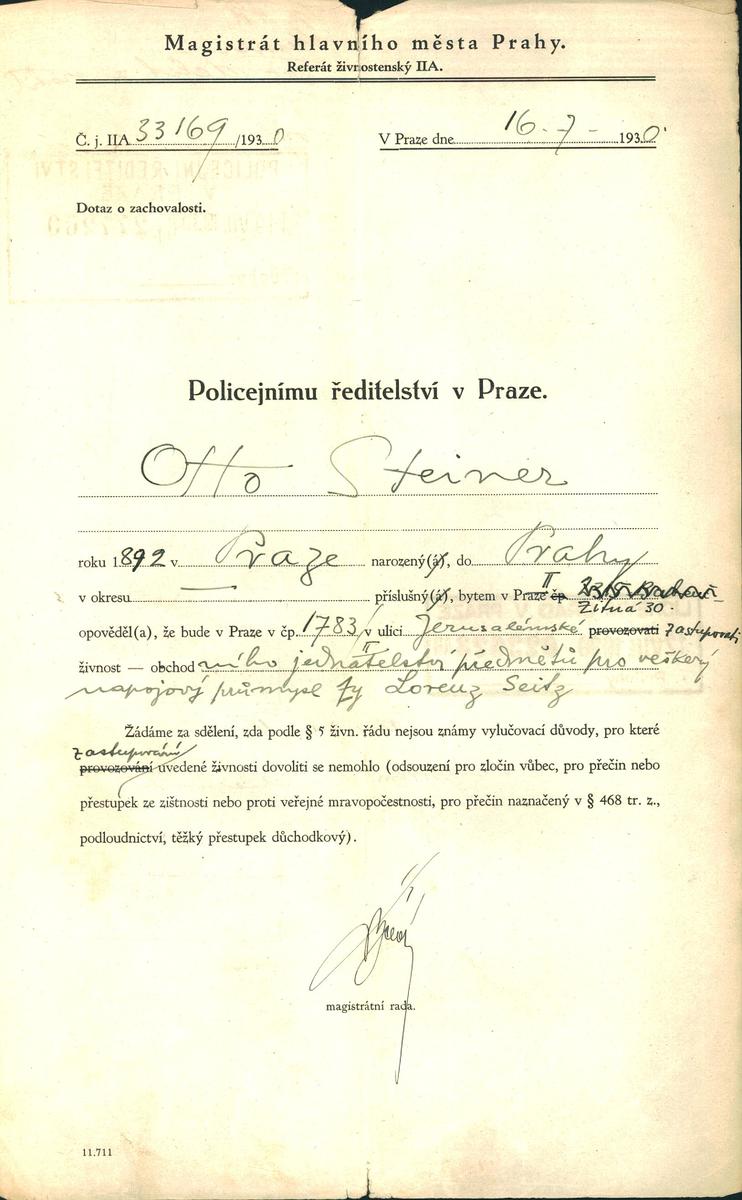 Magistrát hlavního města Prahy.
Referát živnostenský IIA.
Č. j. IIA 33169 /1930 V Praze dne 16 - 7 - 1930
Dotaz o zachovalosti.
Policejnímu ředitelství v Praze.
Otto Steiner
roku 1892 v Praze narozený(á), do Prahy
v okresu — příslušný(á), bytem v Praze II čp.
Žitná 30.
opověděl(a), že bude v Praze v čp. 1783/II v ulici Jerusalémské provozovati zastupovati
živnost — obchodního jednatelství předmětů pro veškerý
nápojový průmysl fy Lorenz Seitz
Žádáme za sdělení, zda podle § 5 živn. řádu nejsou známy vylučovací důvody, pro které
zastupování
provozování uvedené živnosti dovoliti se nemohlo (odsouzení pro zločin vůbec, pro přečin nebo
přestupek ze zištnosti nebo proti veřejné mravopočestnosti, pro přečin naznačený v § 468 tr. z.,
podloudnictví, těžký přestupek důchodkový).
magistrátní rada.
11.711